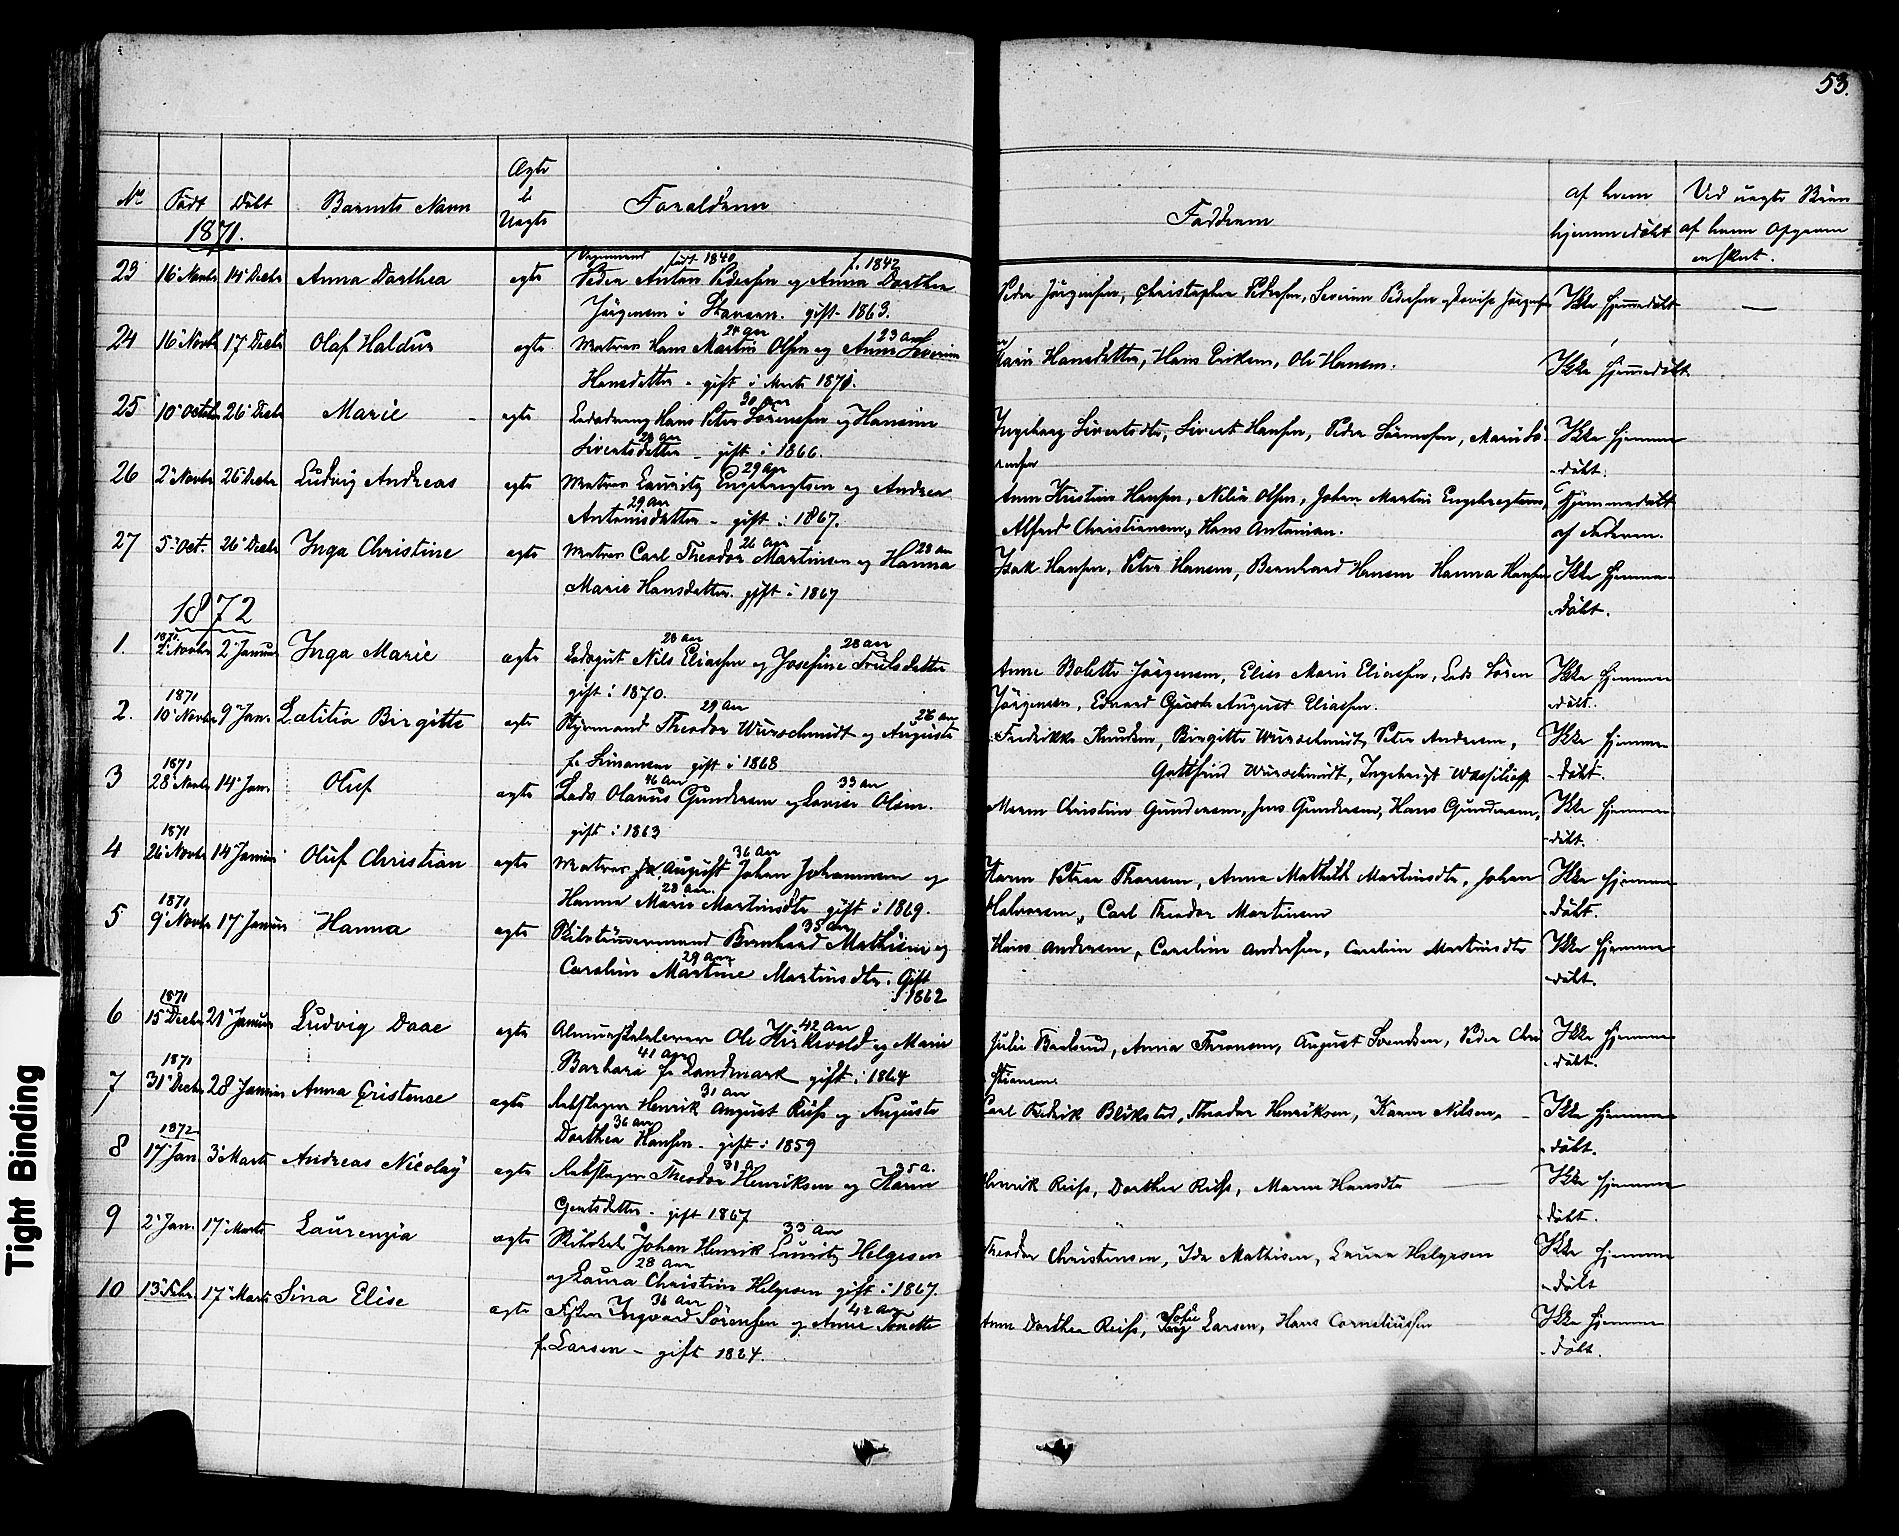 53.
No Født Døbt Barnets Navn Ægte & Uægte Forældrene Fadderne af hvem hjemmedøbt Ved uægte Børn af hvem Opgaven en skeet.
1871.
23 16 Novbr 14 Decbr Anna Dorthea ægte født 1840 f. 1842
Peder Anton Pedersen og Anna Dorthea Peder Jørgensen, Christopher Pedersen, Severin Pedersen Ikke hjemmedøbt —
Jørgensen i Stavern. gift 1863.
24 16 Novbr 17 Decbr Olaf Haldur ægte 24 Aar 23 Aar
Matros Hans Martin Olsen og Anne Severine Karen Hansdatter, Hans Eriksen, Ole Hansen. Ikke hjemmedøbt
Hansdatter - gift i Marts 1871.
25 10 Octob 26 Decbr Marie ægte 30 Aar
Hans Peter Sørensen og Hansine Ingeborg Sivertsdtr, Sivert Hansen, Peder Sørensen, Maren Sø- Ikke hjemme
28 Aar
Sivertsdatter - gift i 1866. rensen -døbt.
26 2 Novbr 26 Decbr Ludvig Andreas ægte 29 Aar
Matros Lauritz Engebregtsen og Andrea Anne Kristine Hansen, Nilia Olsen, Johan Martin Engebregtsen, Hjemmedøbt
29 Aar
Antonisdatter - gift i 1867. Alfred Christiansen, Hans Antonisen. af Faderen.
27 5 Oct. 26 Decbr Inga Christine ægte 26 Aar 28 Aar
Matros Carl Theodor Martinsen og Hanna Isak Hansen, Peter Hansen, Bernhard Hansen Hanna Hansen Ikke hjemme
Marie Hansdatter. gift i 1867 -døbt.
1872
1. 1871 2 Novbr 2 Januar Inga Marie ægte 28 Aar 28 Aar
Nils Eliassen og Josefine Anne Bolette Jørgensen, Elise Marie Eliassen, Lods Søren Ikke hjemme
gift i 1870. Jørgensen, Edvard August Eliassen. -døbt.
2. 1871 10 Novbr 9 Jan Lætitia Birgitte ægte 29 Aar 26 Aar
Styrmand Theodor Wurschmidt og Augusta Fredrikke Knudsen, Birgitte Wurschmidt, Peter Andersen, Ikke hjemme
f. Simonsen gift i 1868 Gottfried Wurschmidt, Ingebrigt -døbt.
3 1871 28 Novbr 14 Jan. Oluf ægte 46 Aar 33 Aar
Lods Olaus Gundersen og Lovise Olsen. Maren Christine Gundersen, Jens Gundersen, Hans Gundersen, Ikke hjemme
gift i 1863 -døbt.
4 1871 26 Novbr 14 Januar Oluf Christian ægte 36 Aar
Matros August Johan Johannesen og Karen Petrea Thoresen, Anna Mathilde Martinsdtr, Johan Ikke hjemme
28 Aar
Hanna Marie Martinsdtr gift i 1869. Halvorsen, Carl Theodor Martinsen -døbt.
5 1871 9 Novbr 17 Januar Hanna ægte 35 Aar
Skibstømmermand Bernhard Mathisen og Hans Andersen, Caroline Andersen, Caroline Martinsdtr Ikke hjemme
29 Aar
Caroline Martine Martinsdtr. Gift -døbt.
i 1862
6 1871 15 Decbr 21 Januar Ludvig Daae ægte 42 Aar
Almueskolelærer Ole Hirkevold og Marie Julie Anna Thronsen, August Svendsen, Peder Chri Ikke hjemme
41 Aar
Barbara f. Landmark gift i 1864 stiansen -døbt.
7 1871 31 Decbr 28 Januar Anna Cristense ægte 31 Aar
Rebslager Henrik August Riis og Augusta Carl Fredrik Blikstad, Theodor Henriksen, Karen Nilsen, Ikke hjemme
36 Aar
Dorthea Hansen - gift i 1859 -døbt.
8 1872 17 Jan. 3 Marts Andreas Nicolay ægte 31 A 35 A.
Rebslager Theodor Henriksen og Karen Henrik Riis, Dorthea Riis, Maren Hansdtr Ikke hjemme
gift 1867 -døbt.
9 2 Jan. 17 Marts Laurenzia ægte 33 Aar
Johan Henrik Lauritz Helgesen Theodor Christensen, Ida Mathisen, Laura Helgesen Ikke hjemme
28 Aar
og Laura Christine Helgesen gift i 1867. -døbt
10 13 Febr. 17 Marts Sina Elise ægte 36 Aar 42 Aar
Fisker Ingvard Sørensen og Anne Tonette Anne Dorthea Riis, Sofie Larsen, Hans Corneliussen Ikke hjemme
f. Larsen - gift 1864. -døbt.
Tight Binding